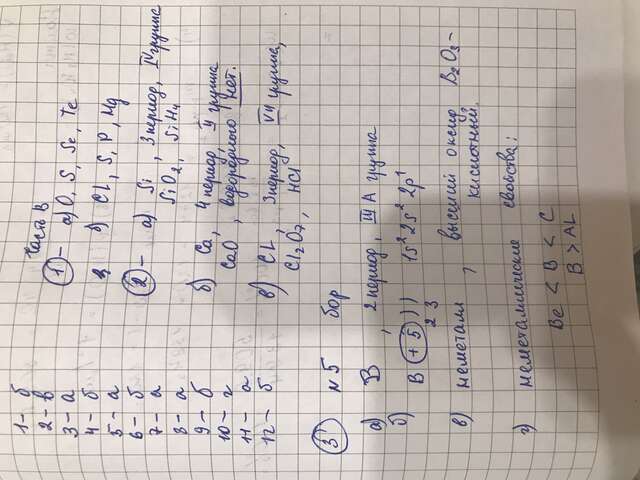 1 – б
2 – в
3 – а
4 – б
5 – а
6 – б
7 – а
8 – а
9 – б
10 – г
11 – а
12 – б
Часть В
1 – а) O, S, Se, Te
б) Cl, S, P, Mg
2 – а) Si, 3 период, IV группа
SiO2, SiH4
б) Ca, 4 период, II группа
CaO, водородного нет.
в) CL, 3 период, VII группа,
Cl2O7, HCl
3 №5 бор
а) B, 2 период, III А группа
б) B +5 ) ) 1s² 2s² 2p¹
2 3
в) неметалл, высший оксид, B2O3 –
кислотный.
г) неметаллические свойства:
Be < B < C
B > AL